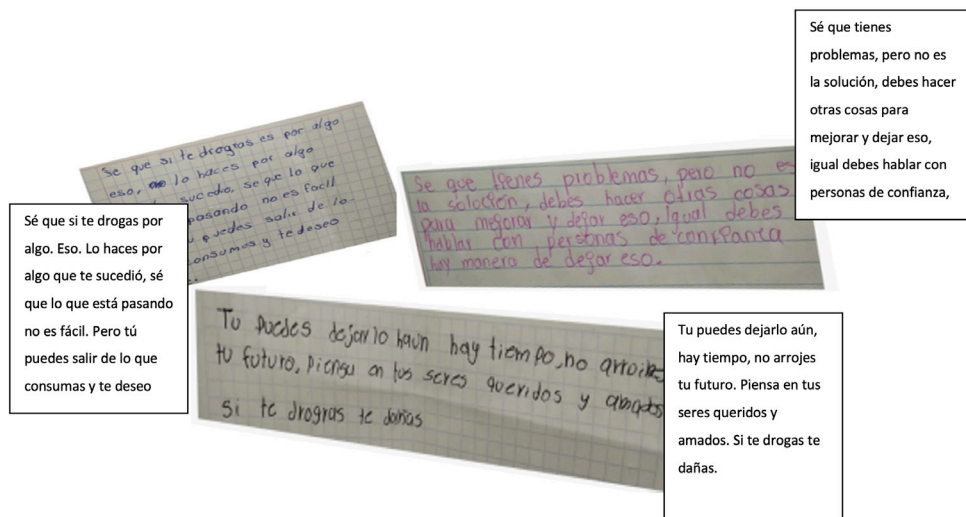 Se que si te drogras es por algo
eso, lo haces por algo
sucedio, se que lo que
pasando no es facil
puedes salir de lo
consumas y te deseo
Sé que si te drogas por
algo. Eso. Lo haces por
algo que te sucedió, sé
que lo que está pasando
no es fácil. Pero tú
puedes salir de lo que
consumas y te deseo
Se que tienes problemas, pero no es
la solución, debes hacer otras cosas
para mejorar y dejar eso, igual debes
hablar con personas de confianza
hay manera de dejar eso.
Sé que tienes
problemas, pero no es
la solución, debes hacer
otras cosas para
mejorar y dejar eso,
igual debes hablar con
personas de confianza,
Tu puedes dejarlo haun hay tiempo, no
tu futuro, piensa en tus seres queridos y amados
Si te drogras te dañas
Tu puedes dejarlo aún,
hay tiempo, no arrojes
tu futuro. Piensa en tus
seres queridos y
amados. Si te drogas te
dañas.